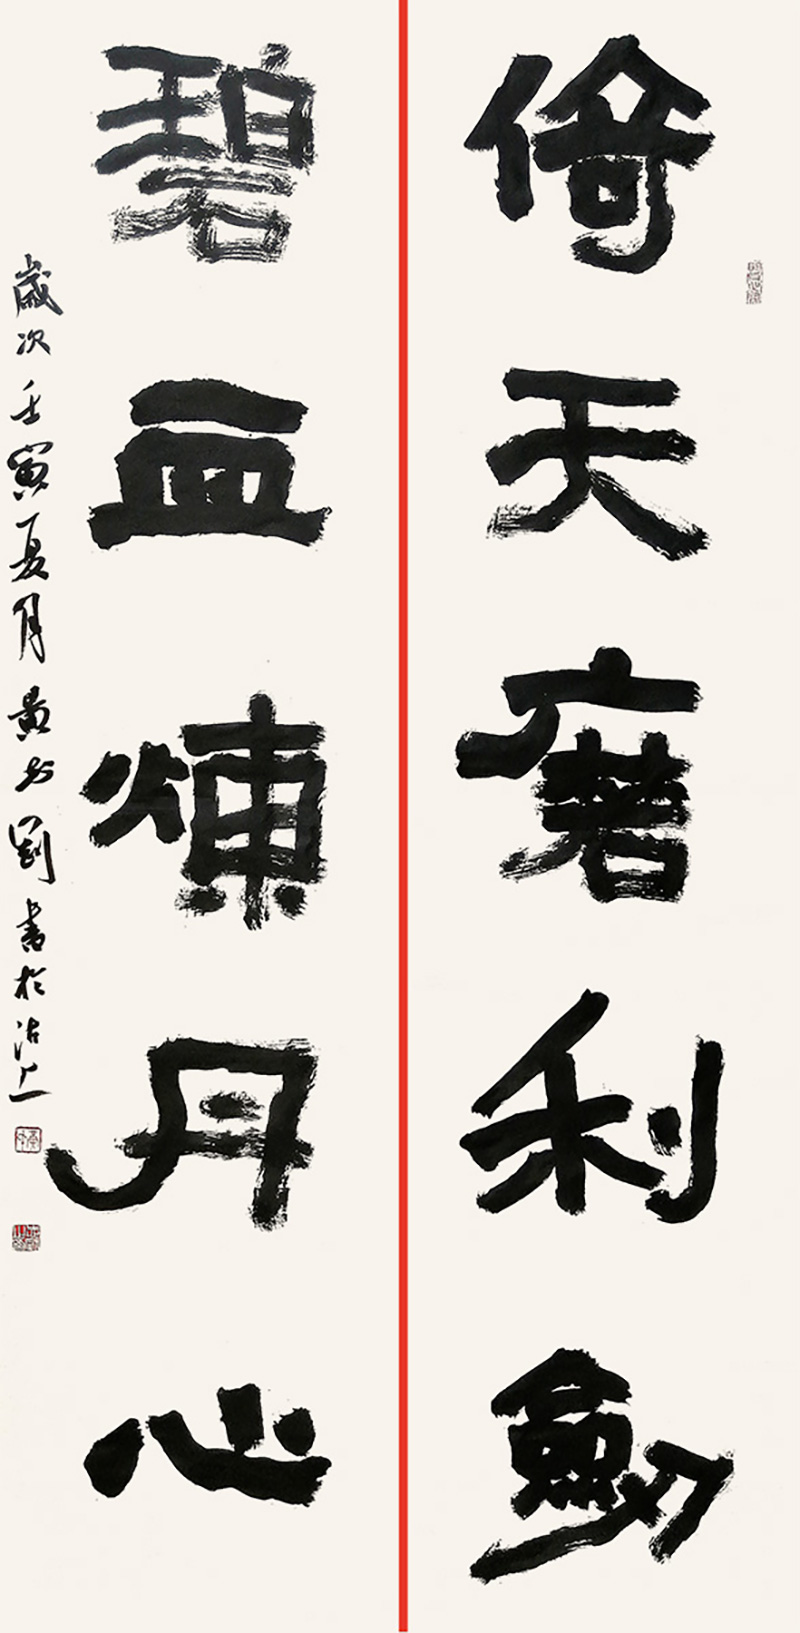 倚天磨利劍
碧血煉丹心
歲次壬寅夏月黃少剛書於沽上